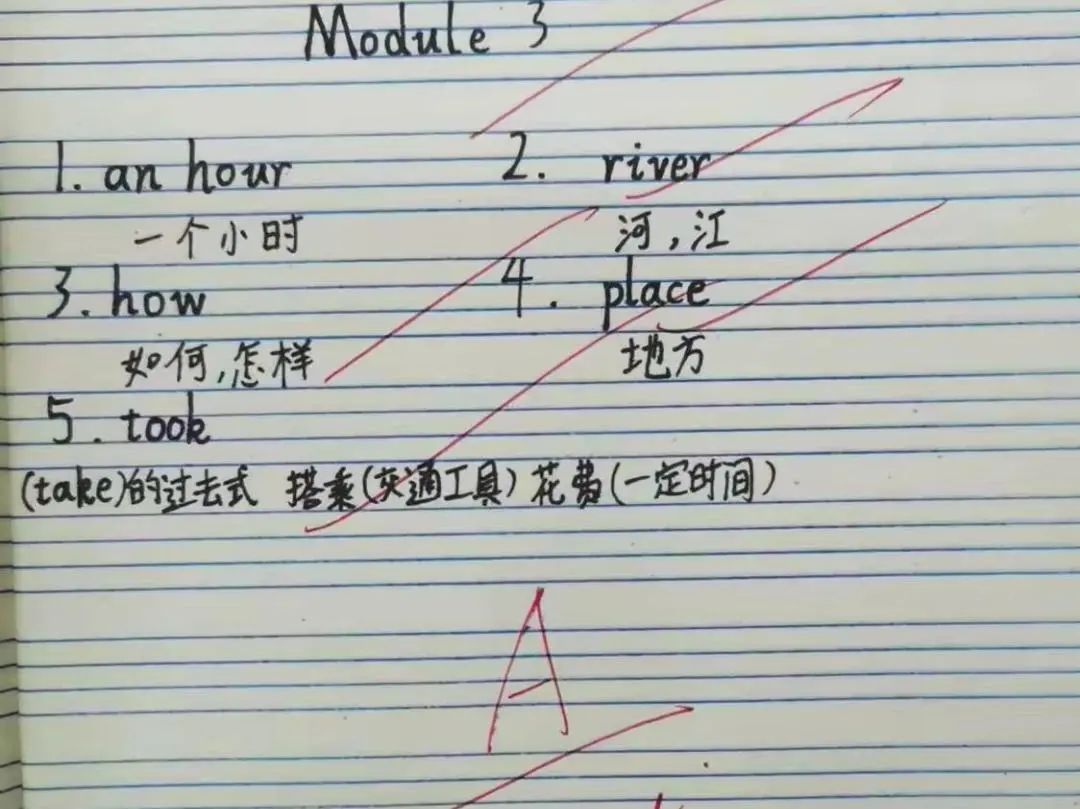 Module 3
1. an hour 2. river
一个小时 河,江
3. how 4. place
如何,怎样 地方
5. took
(take)的过去式 搭乘(交通工具) 花费(一定时间)
A